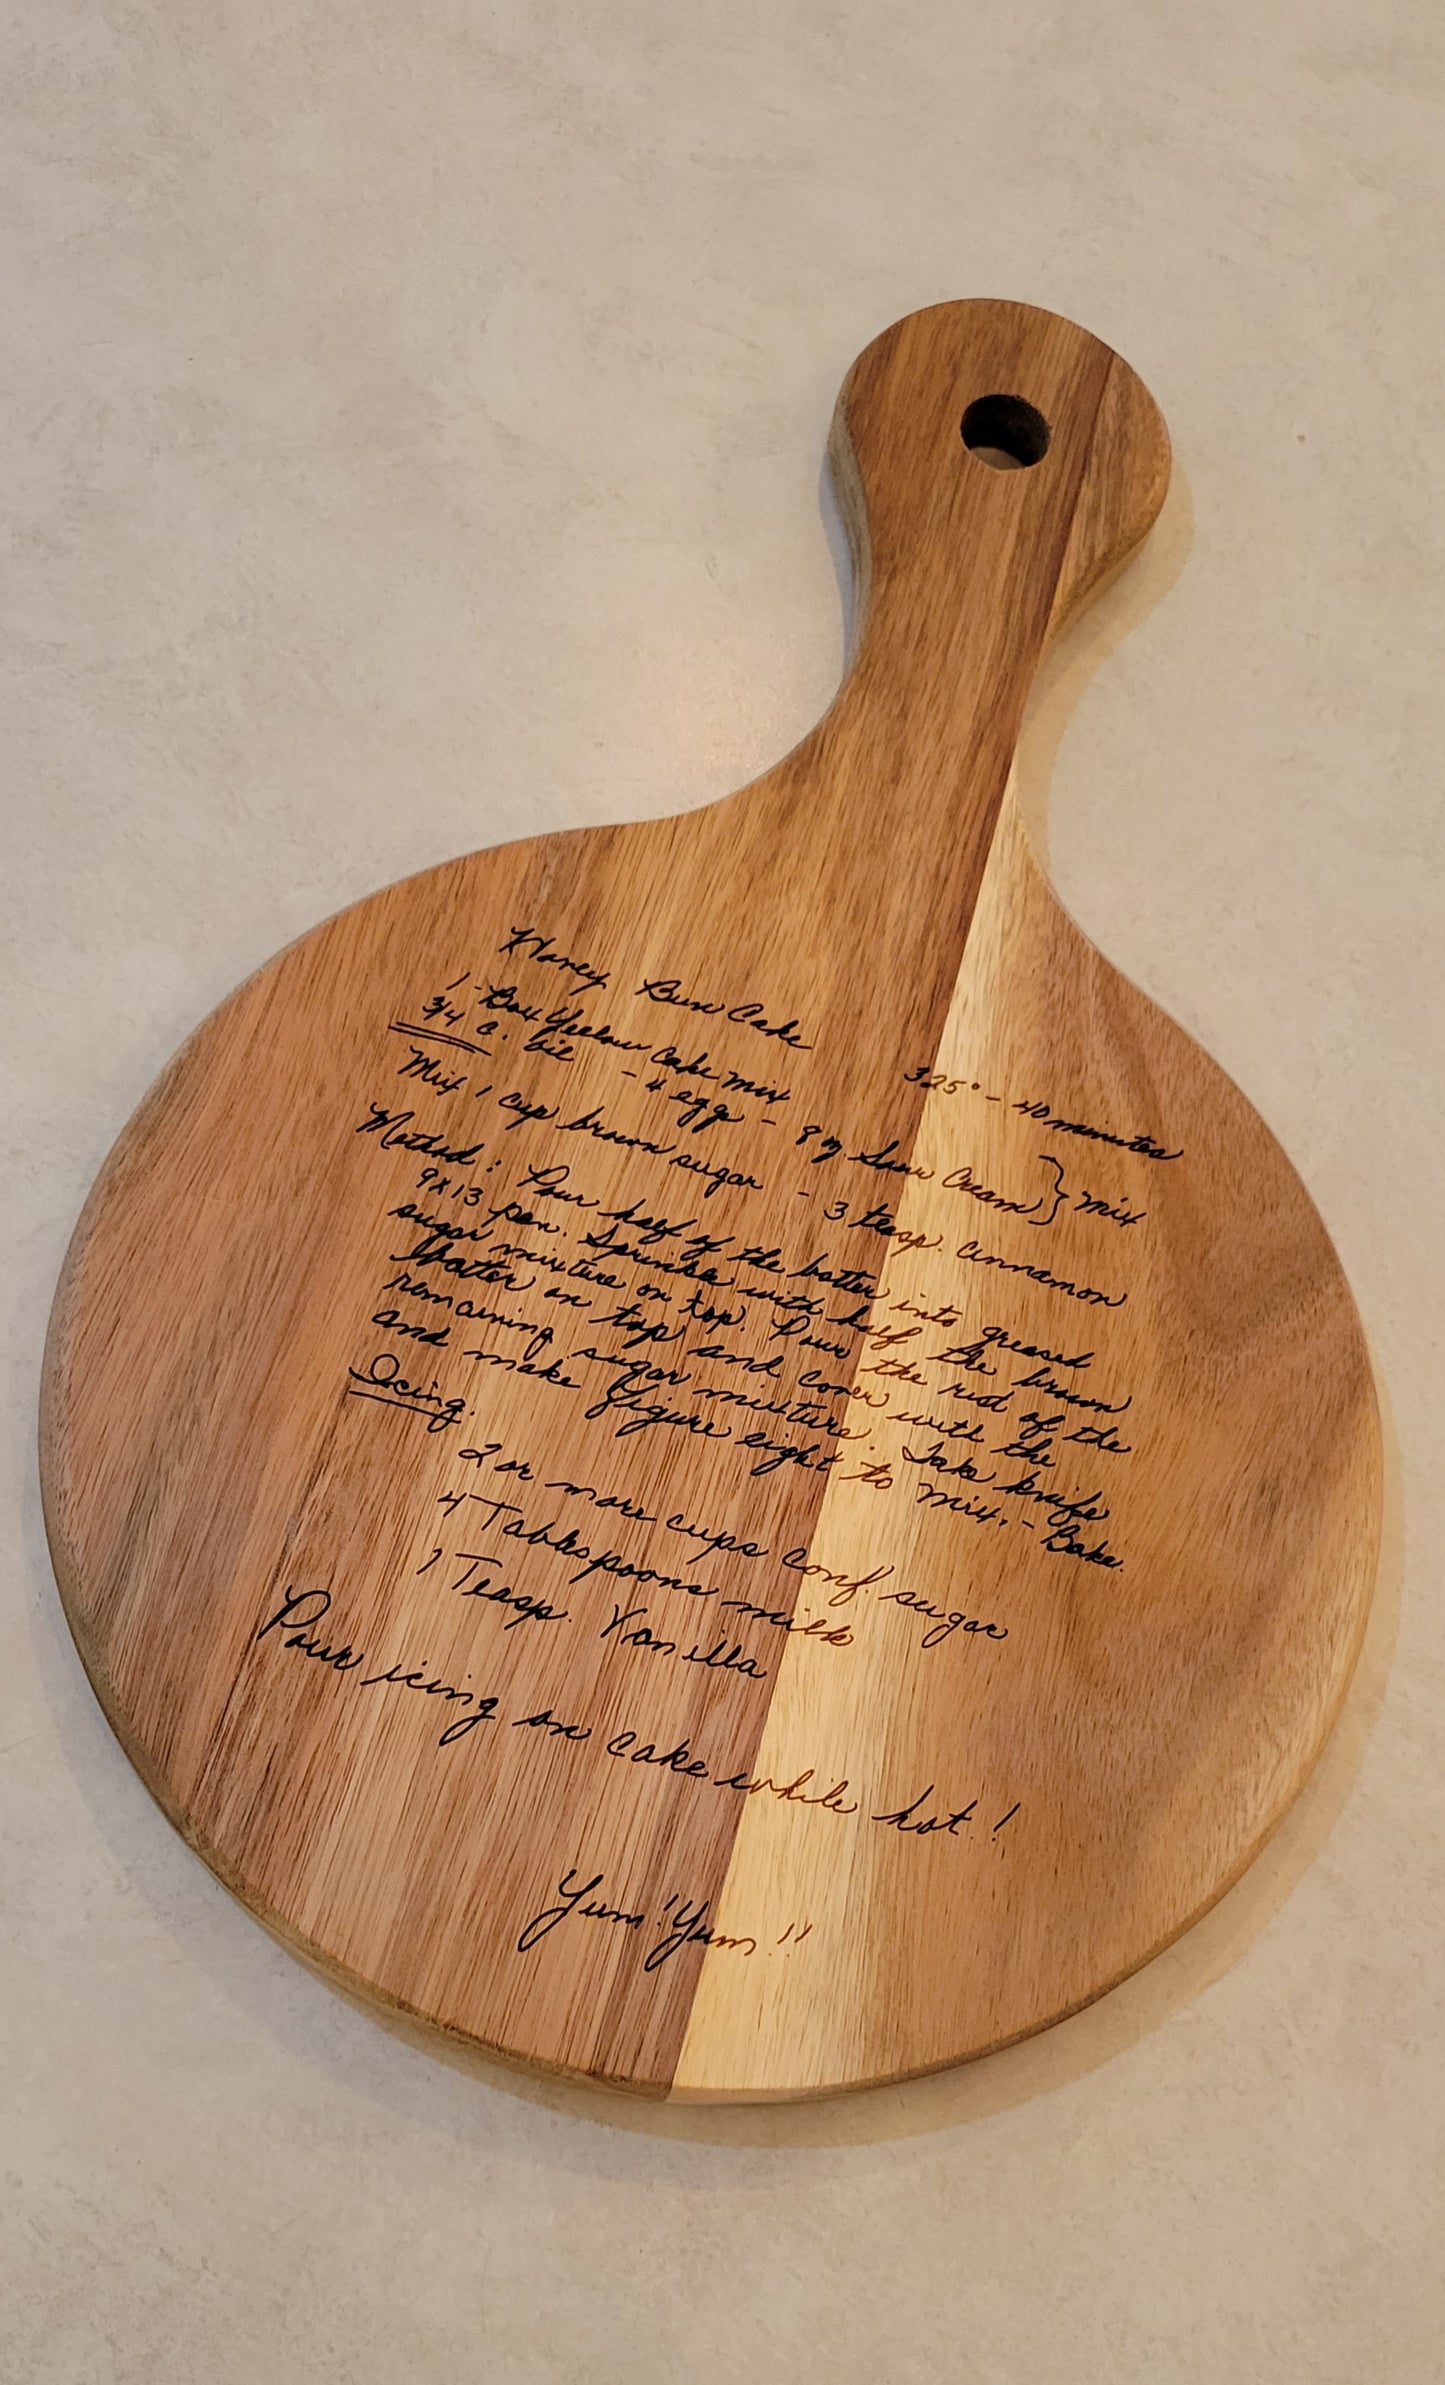 Honey Bun Cake
325° - 40 minutes
1 - Box Yellow Cake Mix
3/4 C. oil - 4 eggs - 8 oz. Sour Cream } Mix
Mix 1 cup brown sugar - 3 teasp. cinnamon
Method: Pour half of the batter into greased
9x13 pan. Sprinkle with half the brown
sugar mixture on top. Pour the rest of the
batter on top and cover with the
remaining sugar mixture. Take knife
and make figure eight to mix. - Bake.
Icing.
2 or more cups conf. sugar
4 Tablespoons milk
1 Teasp. Vanilla
Pour icing on cake while hot!
Yum! Yum!!